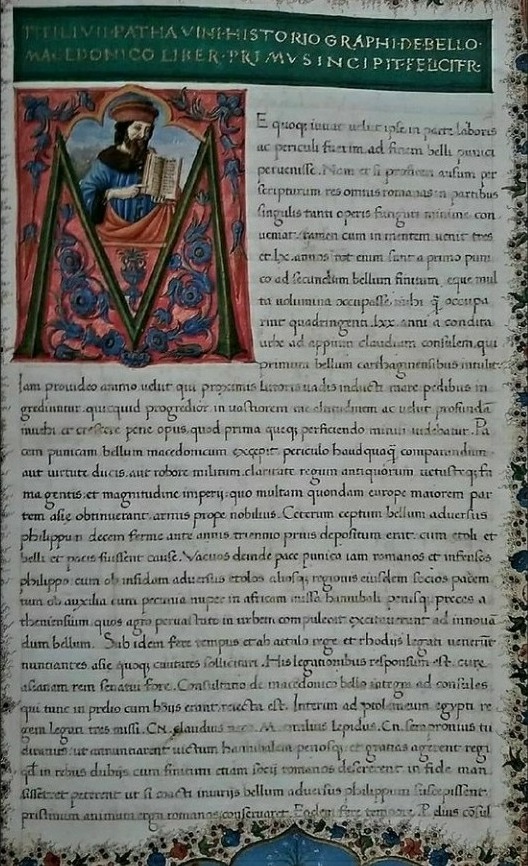 TITI LIVII PATHAVINI HISTORIOGRAPHI DE BELLO
MACEDONICO LIBER PRIMVS INCIPIT FELICITR
M
E quoq; iuuat uelut ipse in parte laboris
ac periculi fuerim ad finem belli punici
peruenisse. Nam et si profiteri ausum per
scripturum res omnis romanas in partibus
singulis tanti operis fatigari minime con
ueniat: tamen cum in mentem uenit tres
et lx. annos tot enim sunt a primo puni
co ad secundum bellum finitum eque mul
ta uolumina occupasse mihi q̄ occupa
rint quadringenti lxx anni a condita
urbe ad appium claudium consulem. qui
primum bellum carthaginensibus intulit
Iam prouideo animo uelut qui proximis litoris uadis inducti mare pedibus in
grediuntur. quicquid progredior in uastiorem me altitudinem ac uelut profundū
inuehi et crescere pene opus quod prima queq; perficiendo minui uidebatur. Pa
cem punicam bellum macedonicum excepit periculo haudquaq̄ comparandum
aut uirtute ducis. aut robore militum. claritate regum antiquorum uetustq; fa
ma gentis. et magnitudine imperij: quo multam quondam europe maiorem par
tem asie obtinuerant armis prope nobilius. Ceterum ceptum bellum aduersus
philippum decem ferme ante annis triennio prius depositum erat. cum etoli et
belli et pacis fuissent cause. Vacuos deinde pace punico iam romanos et infensos
philippo cum ob infidam aduersus etolos aliosq; regionis eiusdem socios pacem
tum ob auxilia cum pecunia nuper in africam missa hannibali penisq; preces a
theniensium quos agro peruastato in urbem compulerat excitauerunt ad innouā
dum bellum. Sub idem fere tempus et ab attalo rege et rhodijs legati uenerūt
nuntiantes asie quoq; ciuitates sollicitari. His legationibus responsum est. cure
asianam rem senatui fore. Consultatio de macedonico bello integra ad consules
qui tunc in predio cum boijs erant reiecta est. Interim ad ptolomeum egypti re
gem legati tres missi. CN. claudius M. emilius lepidus. Cn. sempronius tu
ditanus. ut annunciarent uictum hannibalem penosq; et gratias agerent regi
qđ in rebus dubijs cum finitimi etiam socij romanos desererent in fide man
sisset. et peterent ut si coacti iniurijs bellum aduersus philippum suscepissent
pristinum animum erga romanos conseruaret. Eodem fere tempore. P. elius cōsul